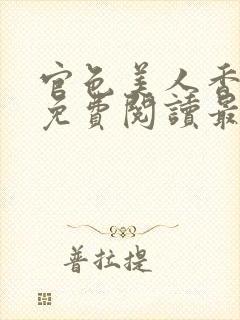 官色美人香
免費閱讀最
普拉提